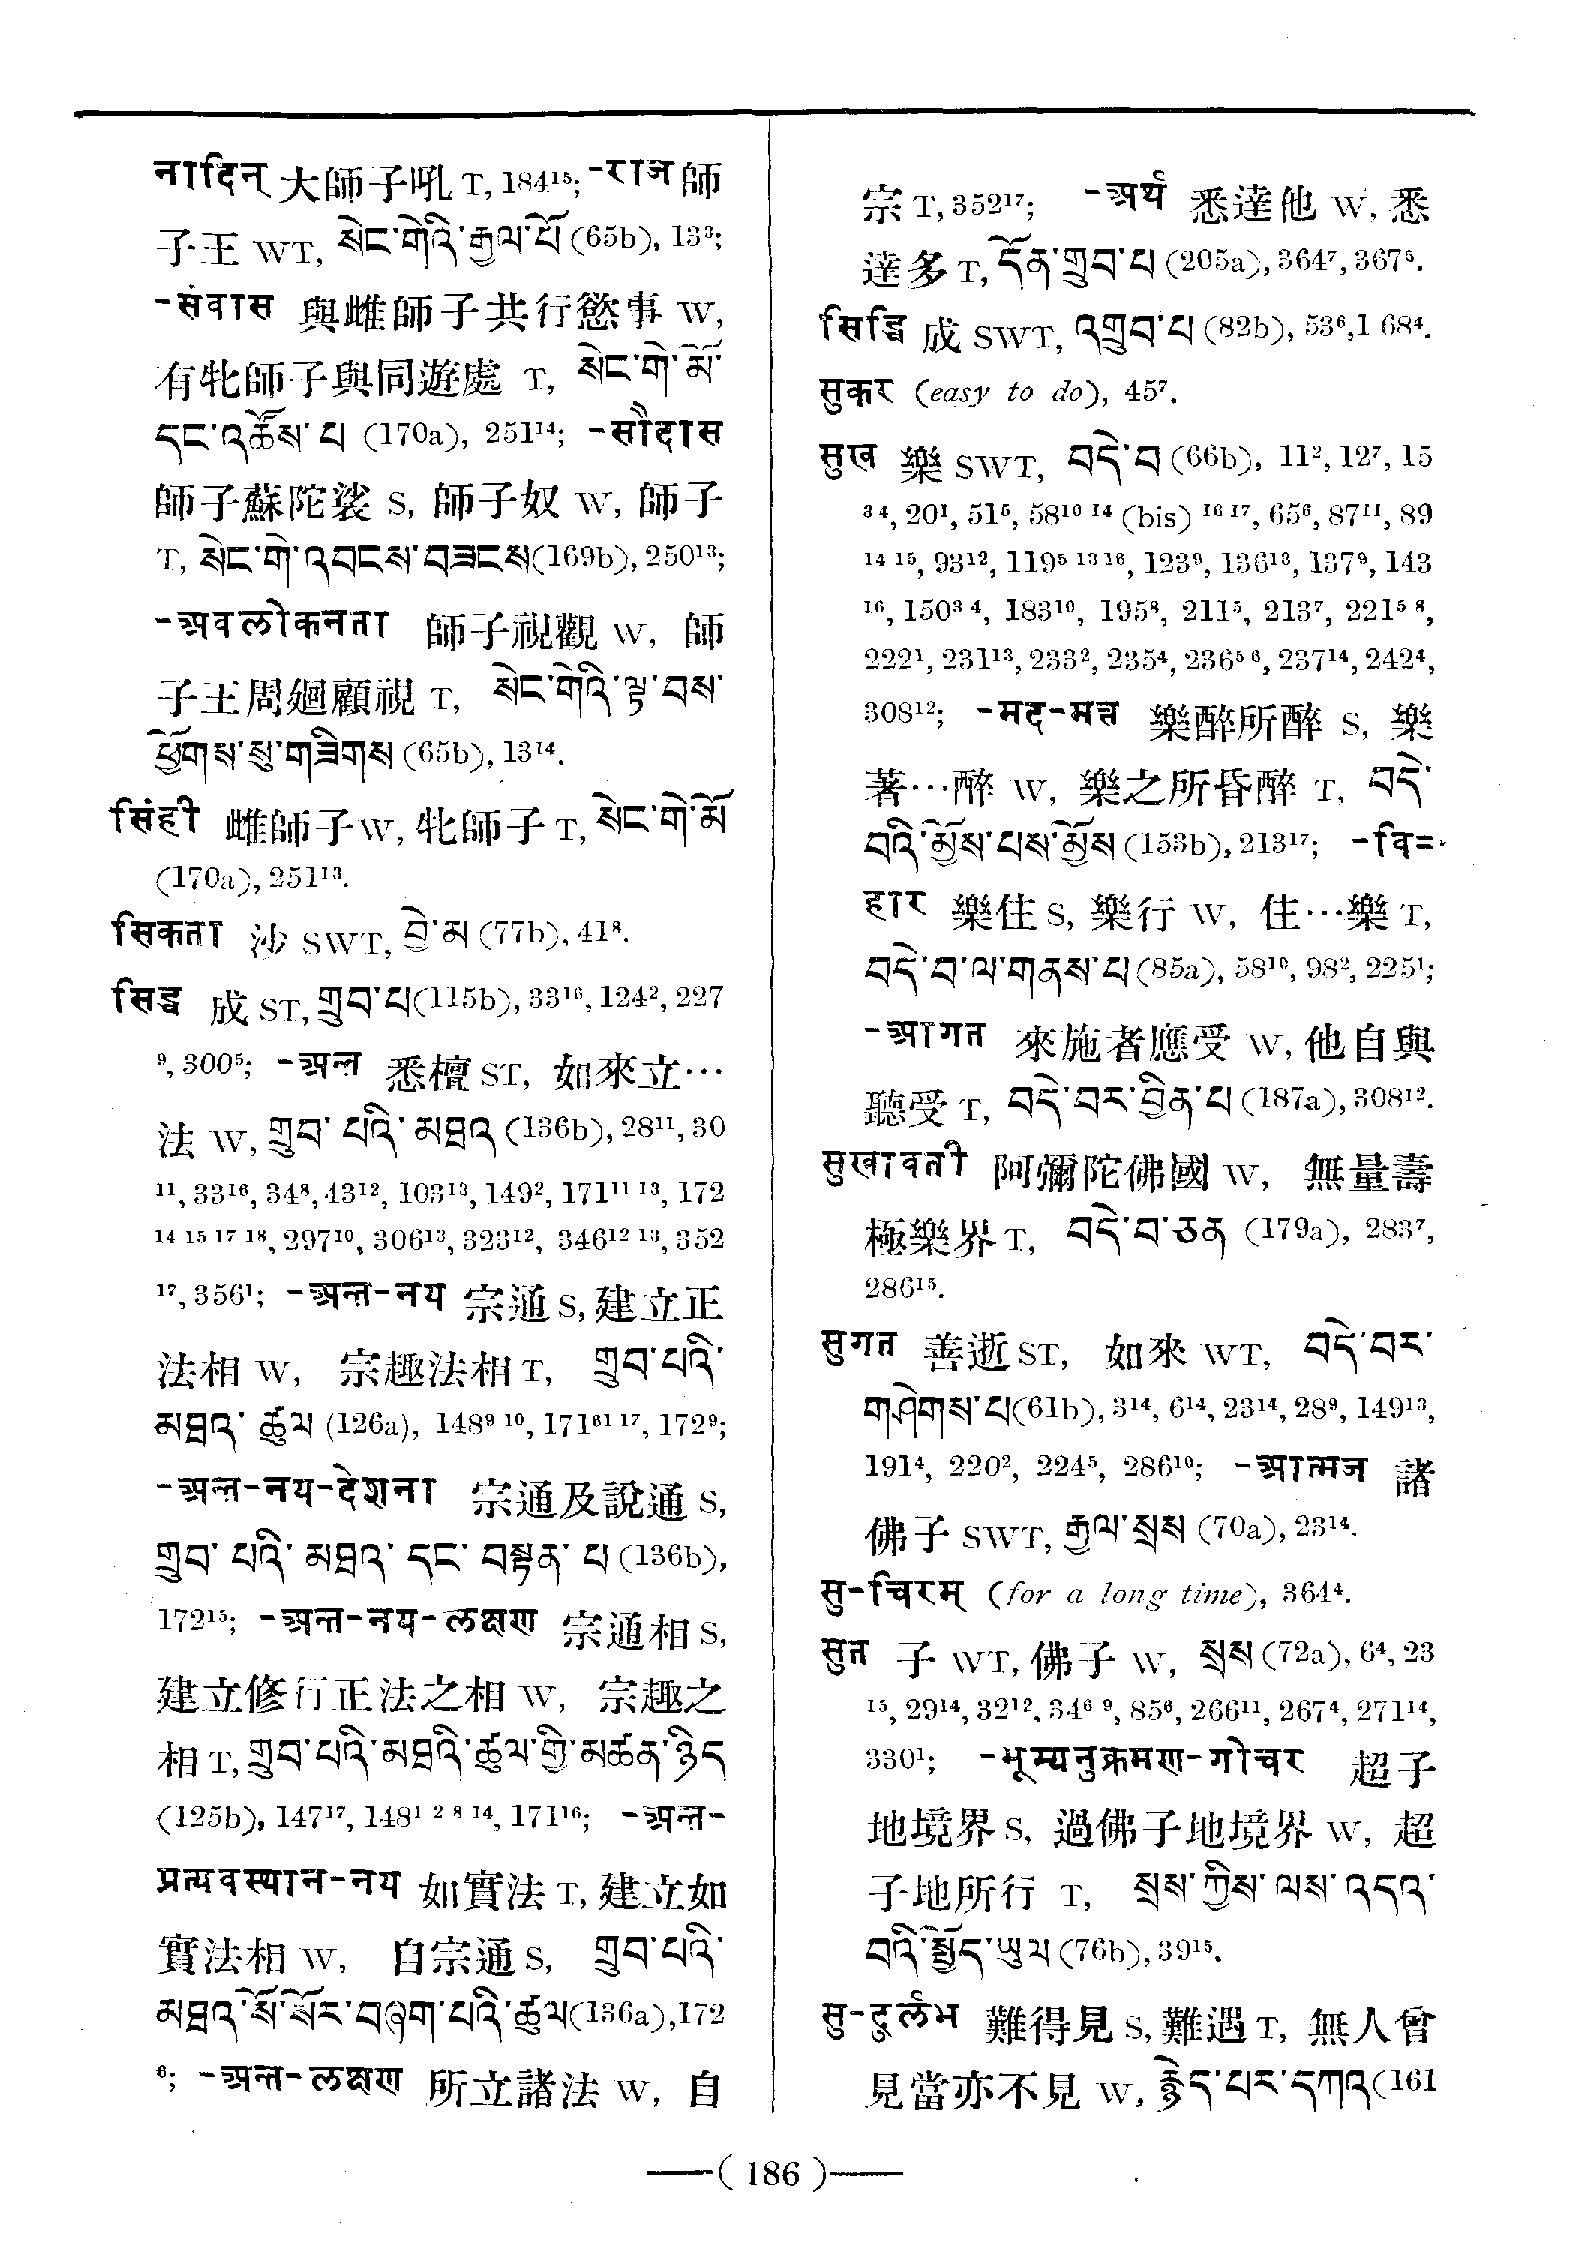 नादिन् 大師子吼 T, 184¹⁵; -राज 師
子王 WT, སེང་གེའི་རྒྱལ་པོ (65b), 13³;
-संवास 與雌師子共行慾事 W,
有牝師子與同遊處 T, སེང་གེ་མོ་
དང་འཆོས་པ (170a), 251¹⁴; -सौदास
師子蘇陀裟 S, 師子奴 W, 師子
T, སེང་གེ་འབངས་བཟངས (169b), 250¹³;
-अवलोकनता 師子視觀 W, 師
子王周廻顧視 T, སེང་གེའི་ལྟ་བས་
ཕྱོགས་སུ་གཟིགས (65b), 13¹⁴.
सिंही 雌師子 W, 牝師子 T, སེང་གེ་མོ
(170a), 251¹³.
सिकता 沙 SWT, བྱེ་མ (77b), 41⁸.
सिद्ध 成 ST, གྲུབ་པ (115b), 33¹⁶, 124², 227
⁹, 300⁵; -अन्त 悉檀 ST, 如來立…
法 W, གྲུབ་པའི་མཐའ (136b), 28¹¹, 30
¹¹, 33¹⁶, 34⁸, 43¹², 103¹³, 149², 171¹¹ ¹³, 172
¹⁴ ¹⁵ ¹⁷ ¹⁸, 297¹⁰, 306¹³, 323¹², 346¹² ¹³, 352
¹⁷, 356¹; -अन्त-नय 宗通 S, 建立正
法相 W, 宗趣法相 T, གྲུབ་པའི་
མཐའ་ཚུལ (126a), 148⁹ ¹⁰, 171⁶¹ ¹⁷, 172⁹;
-अन्त-नय-देशना 宗通及說通 S,
གྲུབ་པའི་མཐའ་དང་བསྟན་པ (136b),
172¹⁵; -अन्त-नय-लक्षण 宗通相 S,
建立修行正法之相 W, 宗趣之
相 T, གྲུབ་པའི་མཐའི་ཚུལ་གྱི་མཚན་ཉིད
(125b), 147¹⁷, 148¹ ² ⁸ ¹⁴, 171¹⁶; -अन्त-
प्रत्यवस्थान-नय 如實法 T, 建立如
實法相 W, 自宗通 S, གྲུབ་པའི་
མཐའ་སོ་སོར་བཞག་པའི་ཚུལ (136a), 172
⁶; -अन्त-लक्षण 所立諸法 W, 自
宗 T, 352¹⁷; -अर्थ 悉達他 W, 悉
達多 T, དོན་གྲུབ་པ (205a), 364⁷, 367⁵.
सिद्धि 成 SWT, འགྲུབ་པ (82b), 53⁶,1 68⁴.
सुकर (easy to do), 45⁷.
सुख 樂 SWT, བདེ་བ (66b), 11², 12⁷, 15
³ ⁴, 20¹, 51⁵, 58¹⁰ ¹⁴ (bis) ¹⁶ ¹⁷, 65⁶, 87¹¹, 89
¹⁴ ¹⁵, 93¹², 119⁵ ¹³ ¹⁶, 123⁹, 136¹³, 137⁹, 143
¹⁶, 150³ ⁴, 183¹⁰, 195⁸, 211⁵, 213⁷, 221⁵ ⁸,
222¹, 231¹³, 233², 235⁴, 236⁵ ⁶, 237¹⁴, 242⁴,
308¹²; -मद-मत्त 樂醉所醉 S, 樂
著…醉 W, 樂之所昏醉 T, བདེ་
བའི་མྱོས་པས་མྱོས (153b), 213¹⁷; -वि=
हार 樂住 S, 樂行 W, 住…樂 T,
བདེ་བ་ལ་གནས་པ (85a), 58¹⁰, 98², 225¹;
-आगत 來施者應受 W, 他自與
聽受 T, བདེ་བར་བྱིན་པ (187a), 308¹².
सुखावती 阿彌陀佛國 W, 無量壽
極樂界 T, བདེ་བ་ཅན (179a), 283⁷,
286¹⁵.
सुगत 善逝 ST, 如來 WT, བདེ་བར་
གཤེགས་པ (61b), 3¹⁴, 6¹⁴, 23¹⁴, 28⁹, 149¹³,
191⁴, 220², 224⁵, 286¹⁰; -आत्मज 諸
佛子 SWT, རྒྱལ་སྲས (70a), 23¹⁴.
सु-चिरम् (for a long time), 364⁴.
सुत 子 WT, 佛子 W, སྲས (72a), 6⁴, 23
¹⁵, 29¹⁴, 32¹², 34⁶ ⁹, 85⁶, 266¹¹, 267⁴, 271¹⁴,
330¹; -भूम्यनुक्रमण-गोचर 超子
地境界 S, 過佛子地境界 W, 超
子地所行 T, སྲས་ཀྱིས་ལས་འདའ་
བའི་སྤྱོད་ཡུལ (76b), 39¹⁵.
सु-दुर्लभ 難得見 S, 難遇 T, 無人曾
見當亦不見 W, རྙེད་པར་དཀའ (161
—( 186 )—